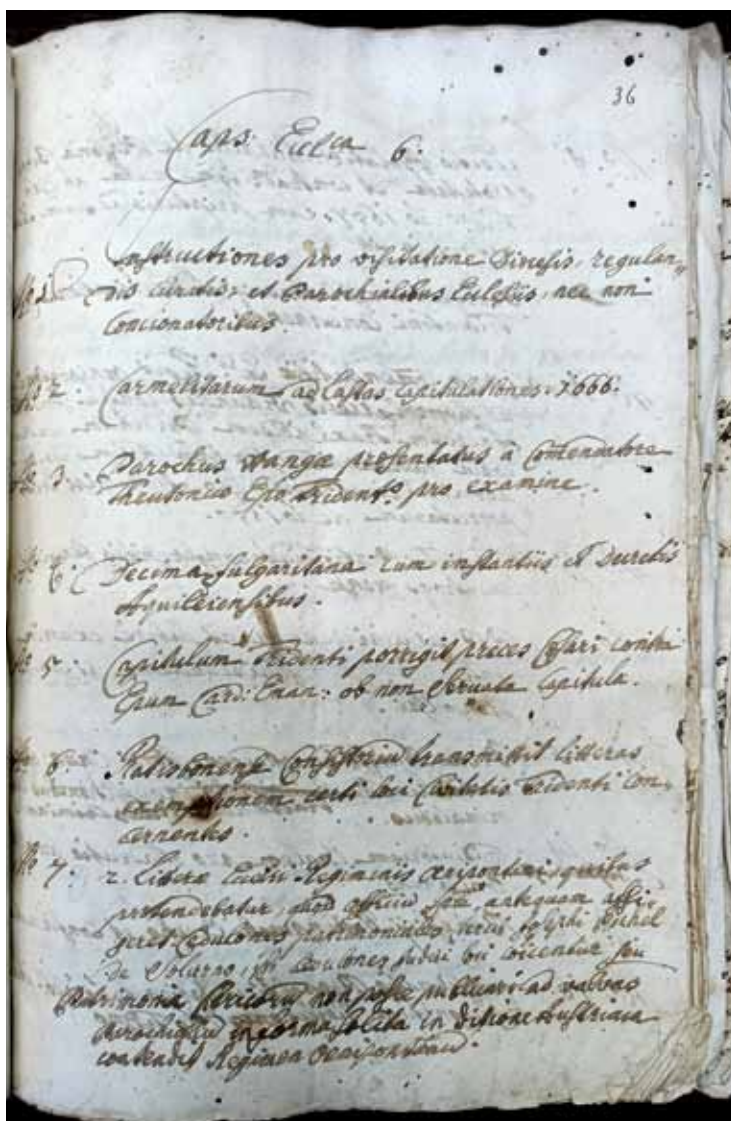 36
Caps: Eccl.ca 6.
Instructiones pro visitatione Diœcesis, regulan„
No 1. dis curatis, et Parochialibus Ecclesiis, nec non
Concionatoribus.
No 2. Carmelitarum ad Castas capitulationes. 1666.
No 3. Parochus Wangæ presentatus à Comendatore
Theutonico Epo Tridento pro examine.
No 6. Decima fulgaritana cum instantiis et Decretis
Aquileiensibus.
No 5. Capitulum Tridenti porrigit preces Cæsari contra
Epum Card: Eman: ob non servata Capitula.
No 6. Ratisbonense Consistoriu transmittit litteras
exemptionem certi loci Civitatis Tridenti con„
cernentes.
No 7. 2. Literæ Regiminis Oenipontani, quibus
prætendebatur, quod officiu antequam affi„
geret patrimoniales
de Volturno,
Patrimonia Clericoru non posse publicari ad valvas
in forma solita in Ditione Austriaca
contendit Regimen Oenipontanu.